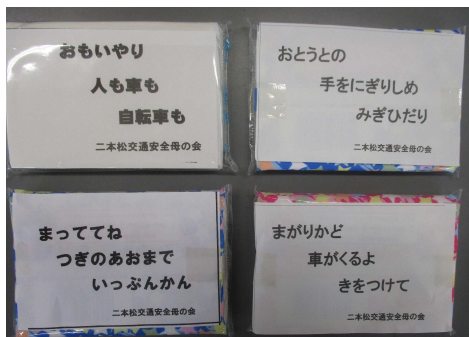 おもいやり
人も車も
自転車も
二本松交通安全母の会
おとうとの
手をにぎりしめ
みぎひだり
二本松交通安全母の会
まっててね
つぎのあおまで
いっぷんかん
二本松交通安全母の会
まがりかど
車がくるよ
きをつけて
二本松交通安全母の会